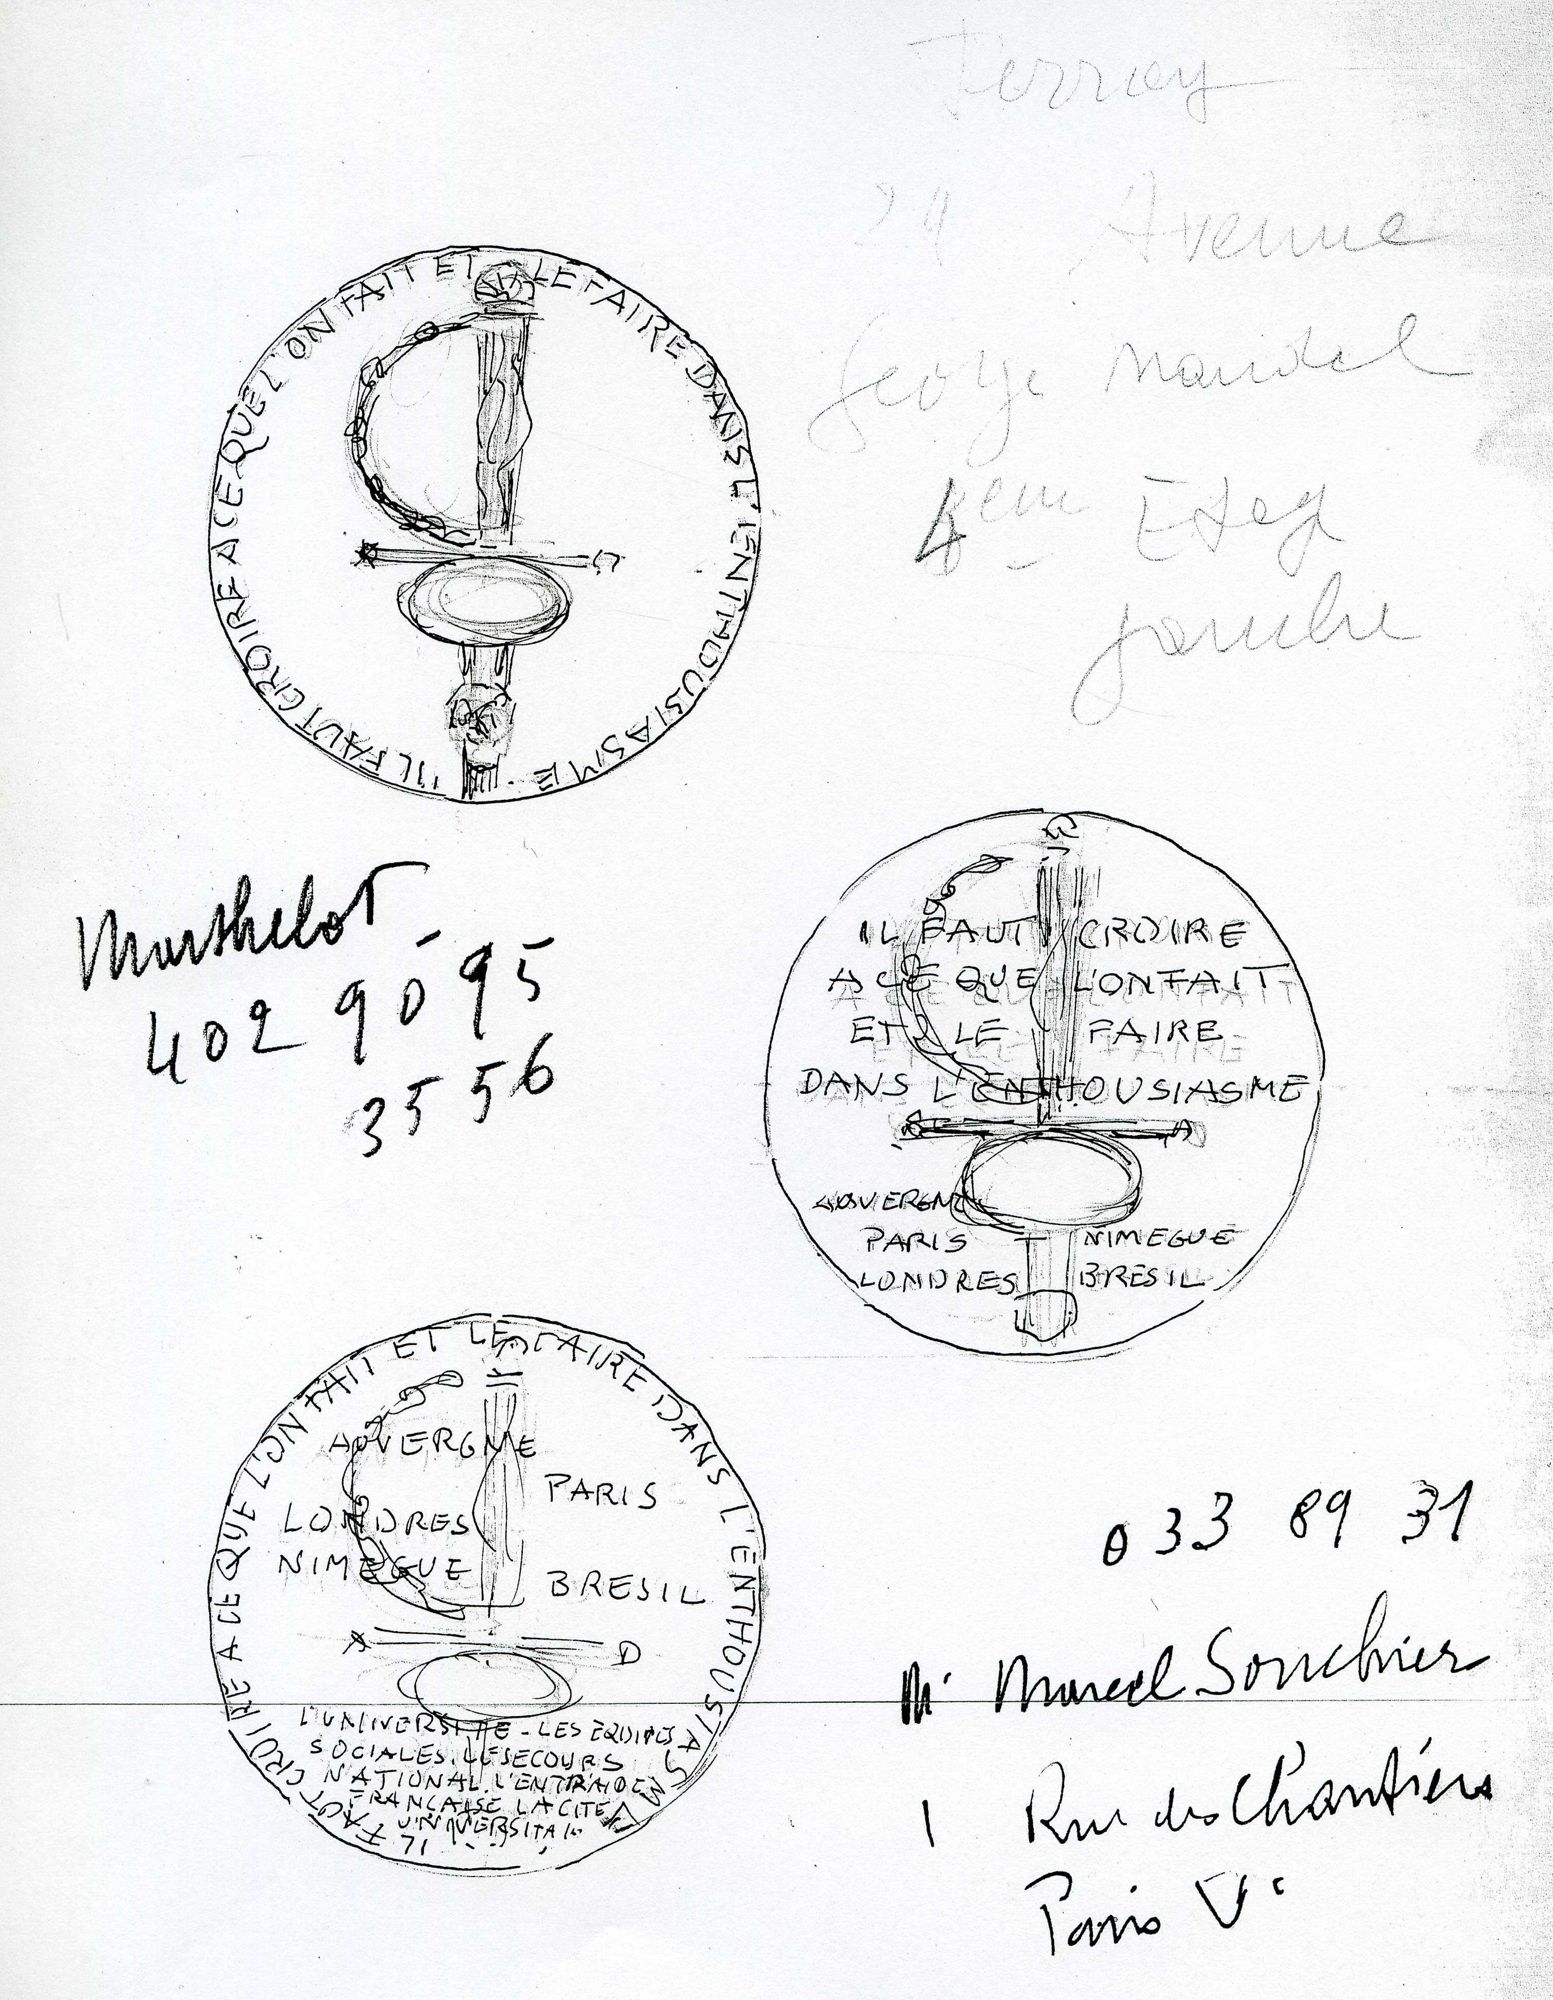 29 Avenue
George Mandel
4em Etag
gauche
"IL FAUT CROIRE A CE QUE L'ON FAIT ET LE FAIRE DANS L'ENTHOUSIASME.
Marthelot
402 90 95
35 56
IL FAUT CROIRE
A CE QUE L'ON FAIT
ET LE FAIRE
DANS L'ENTHOUSIASME
AUVERGNE
PARIS NIMEGUE
LONDRES BRESIL
IL FAUT CROIRE A CE QUE L'ON FAIT ET LE FAIRE DANS L'ENTHOUSIASME
AUVERGNE
PARIS
LONDRES
NIMEGUE
BRESIL
A D
L'UNIVERSITE - LES EQUIPES
SOCIALES. LE SECOURS
NATIONAL. L'ENTRAIDE
FRANCAISE LA CITE
UNIVERSITAI
033 89 31
Mr Marcel Souchier
1 Rue des Chantiers
Paris Ve